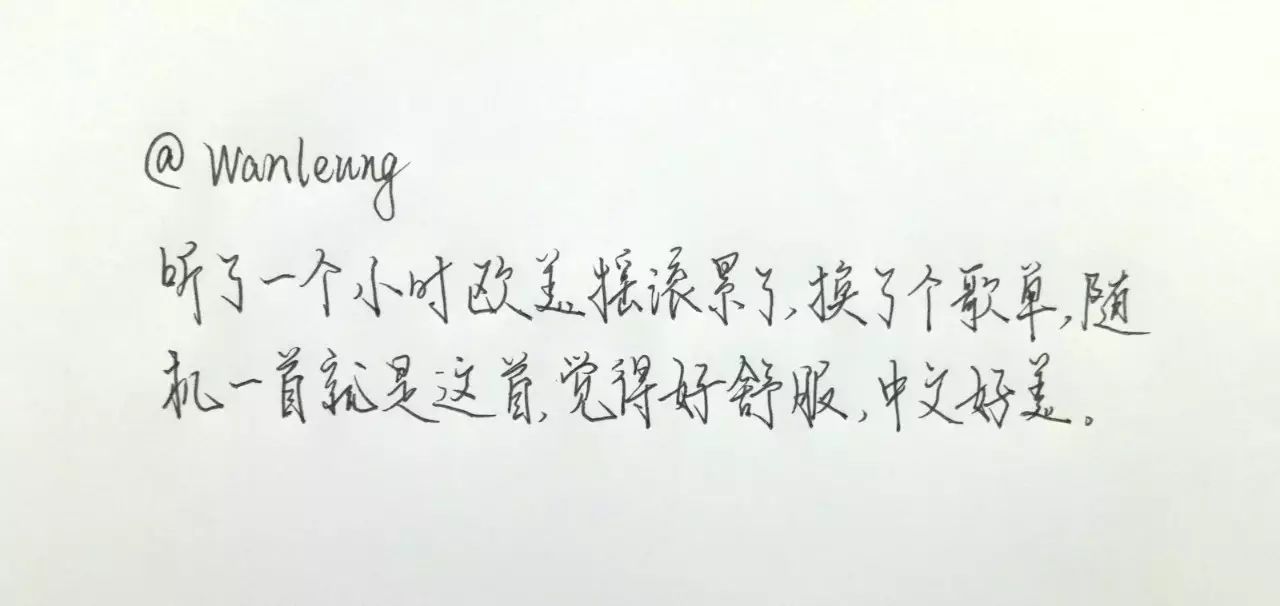 @ Wanleung
听了一个小时欧美摇滚累了,换了个歌单,随
机一首就是这首,觉得好舒服,中文好美。